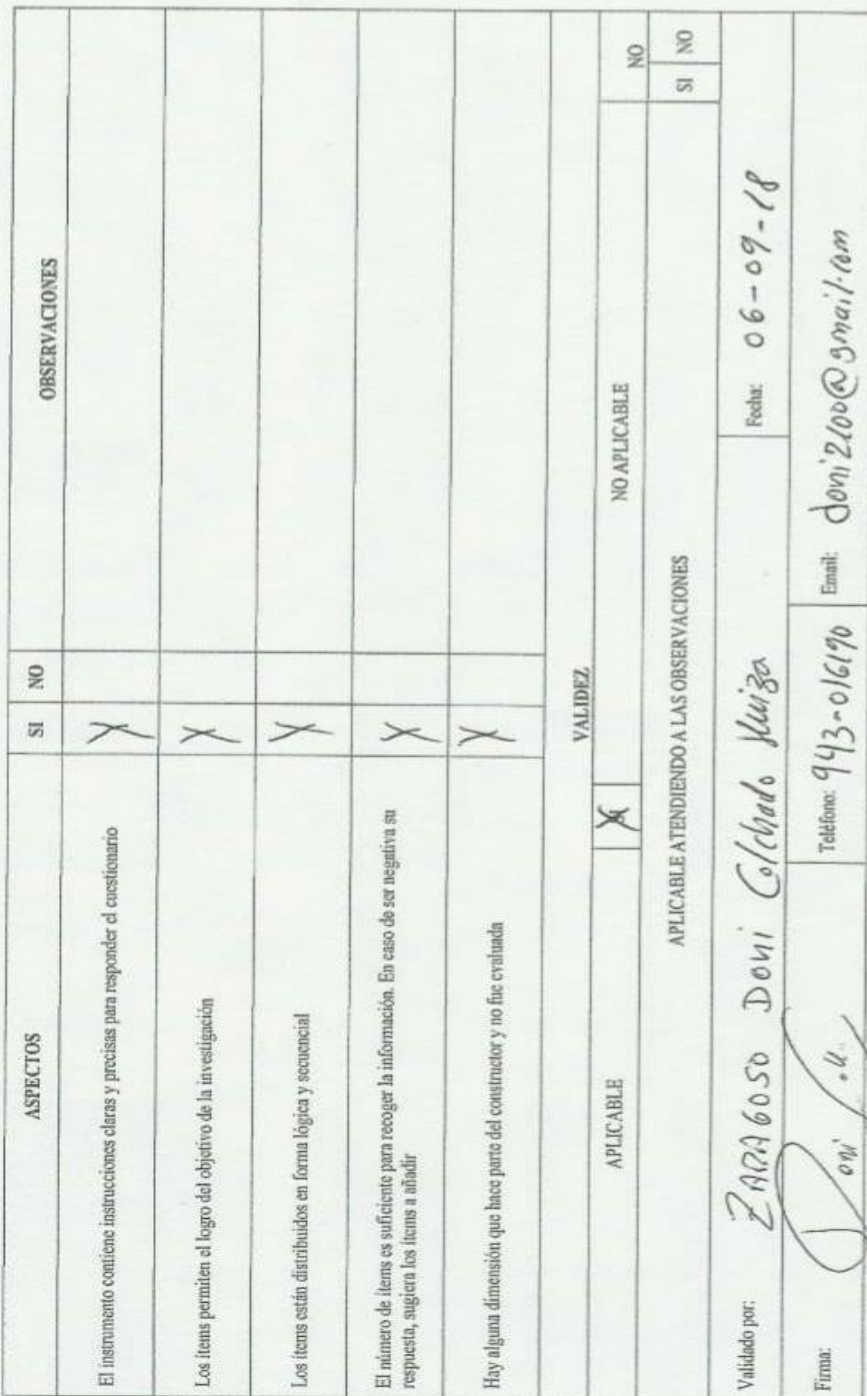 ASPECTOS SI NO OBSERVACIONES
El instrumento contiene instrucciones claras y precisas para responder el cuestionario X
Los items permiten el logro del objetivo de la investigación X
Los items están distribuidos en forma lógica y secuencial X
El número de items es suficiente para recoger la información. En caso de ser negativa su X
respuesta, sugiera los items a añadir
Hay alguna dimensión que hace parte del constructor y no fue evaluada X
VALIDEZ
APLICABLE SI X NO APLICABLE NO
APLICABLE ATENDIENDO A LAS OBSERVACIONES SI NO
Validado por: ZARAGOSO Doni Colchado Huiza Fecha: 06-09-18
Firma: Doni Teléfono: 943-016190 Email: doni2100@gmail.com